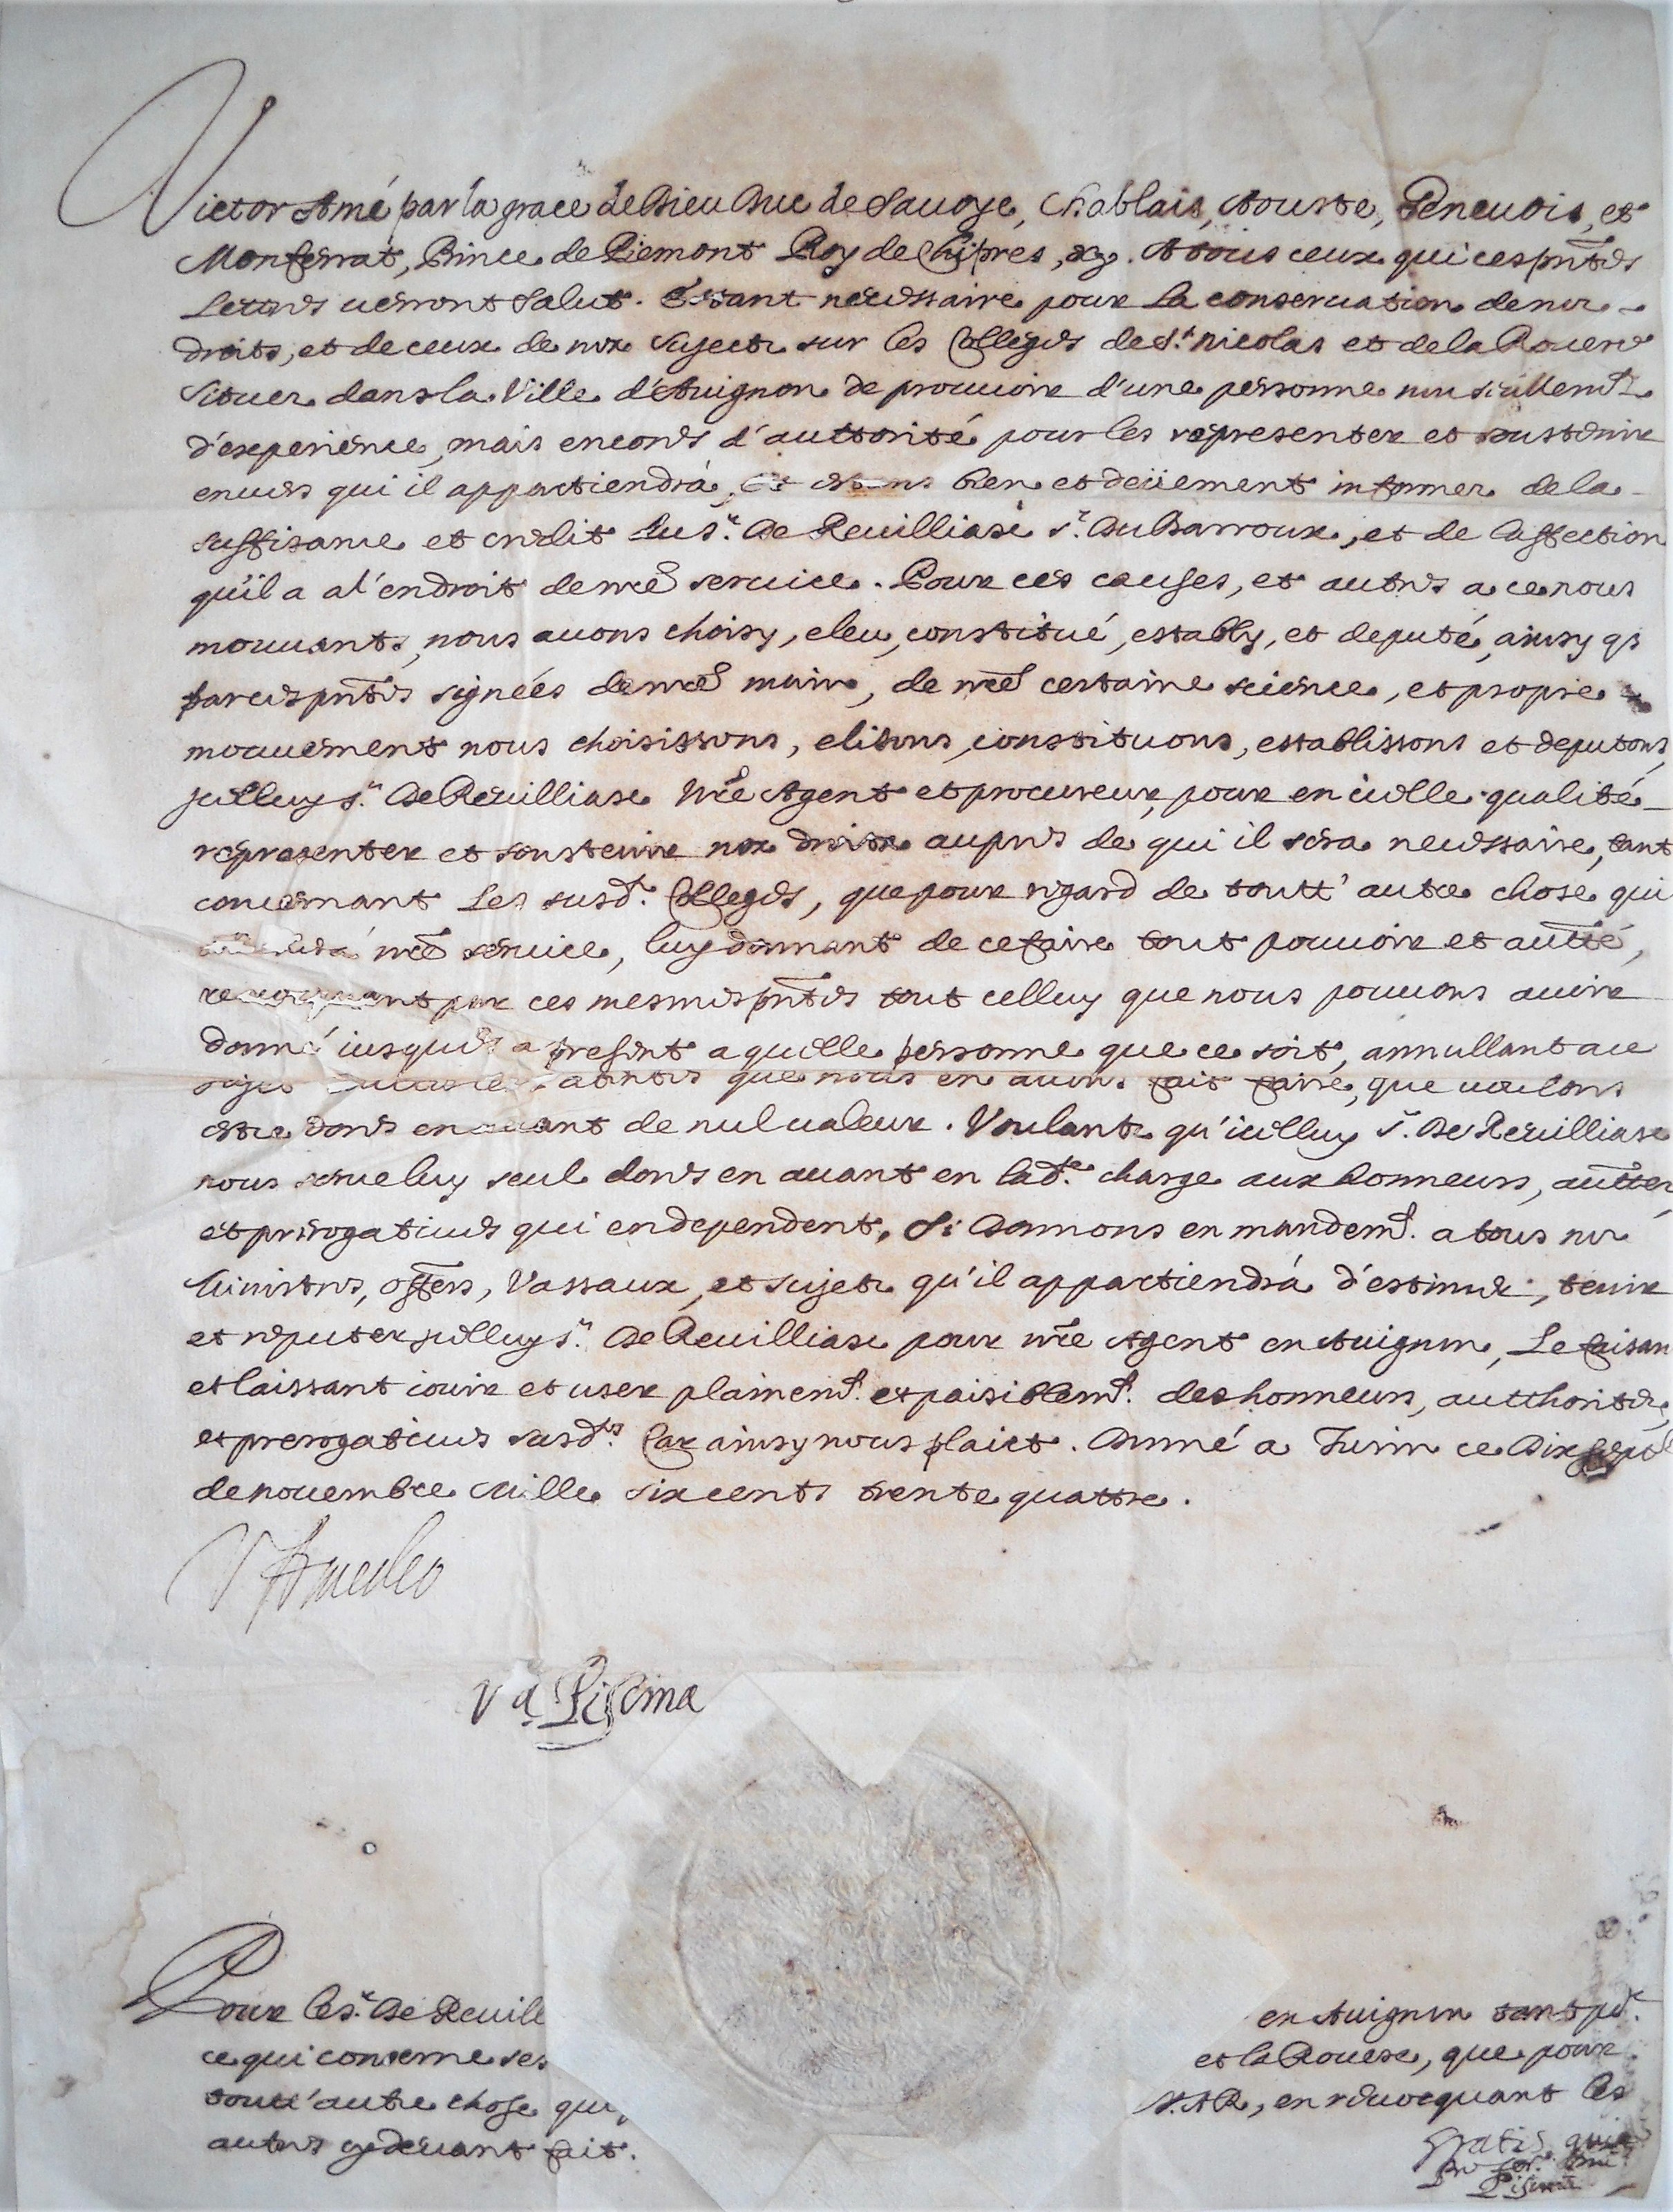 Victor Amé par la grace de Dieu Duc de Sauoye, Chablais, Aouste, Geneuois, et
Monferrat, Prince de Piemont Roy de Chipres, &c. A tous ceux qui ces pñtes
Lettres uerront Salut. Estant necessaire pour la conseruation de nos
droits, et de ceux de noz Sujects sur les Colleges de St. Nicolas et de la Rouere
situez dans la Ville d'Auignon de prouuoir d'une personne non seullemt.
d'experience, mais encores d'auttorité pour les representer et soustenir
enuers qui il appartiendrà, Et estans bien et deüement informez de la
suffisance et credit du Sr. De Reuilliasc Sr. Du Barroux, et de l'affection
qu'il a al'endroit de nrẽ seruice. Pour ces causes, et autres a ce nous
mouuants, nous auons choisy, eleu, constitué, estably, et deputé, ainsy qs
par ces pñtes signées de nrẽ main, de nrẽ certaine science, et propre
mouuement nous choisissons, elisons, constituons, establissons et deputons
icelluy Sr. De Reuilliasc nrẽ Agent et procureur, pour en icelle qualité
representer et soustenir noz droitz aupres de qui il sera necessaire, tant
concernant les susdt. Colleges, que pour regard de toutt' autre chose qui
nrẽ seruice, luy donnant de ce faire tout pouuoir et auttẽ,
reuocquant par ces mesmes pñtes tout celluy que nous pouuons auoir
donné iusques a present a quelle personne que ce soit, annullant a ce
sujet patentes que nous en auons fait faire, que uoulons
estre dores en auant de nul ualeur. Voulants qu'icelluy Sr. De Reuilliasc
nous serue luy seul dores en auant en ladte. charge aux honneurs, auttez
et prerogatiues qui en dependent, Si Donnons en mandemt. a tous nos
Ministres, offers, Vassaux, et sujets qu'il appartiendrà d'estimer, tenir
et reputer icelluy Sr. De Reuilliasc pour nrẽ Agent en Auignon, Le faisant
et laissant iouir et user plainemt. et paisiblemt. des honneurs, autthoritez,
et prerogatiues susdts. Car ainsy nous plaict. Donné a Turin ce Dix sept
de nouembre Mille six cents trente quattre.
V Amedeo
Va. Piscina
Pour le Sr. De Reuill en Auignon tant pr.
ce qui concerne les et la Rouere, que pour
toutt' autre chose qui S.A.R., en reuocquant les
autres cydeuant fait.
Gratis quia
Piscina